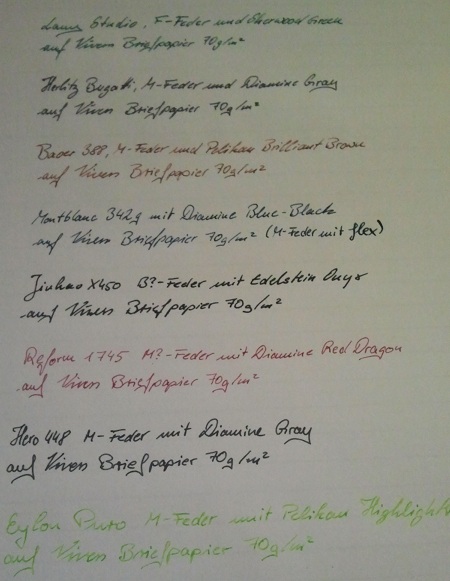 Lamy Studio, F-Feder und Sherwood Green
auf Vivers Briefpapier 70g/m²
Herlitz Bugatti, M-Feder und Diamine Gray
auf Vivers Briefpapier 70g/m²
Baoer 388, M-Feder und Pelikan Brilliant Brown
auf Vivers Briefpapier 70g/m²
Montblanc 342g mit Diamine Blue-Black
auf Vivers Briefpapier 70g/m² (M-Feder mit flex)
Jinhao X450 B?-Feder mit Edelstein Onyx
auf Vivers Briefpapier 70g/m²
Reform 1745 M?-Feder mit Diamine Red Dragon
auf Vivers Briefpapier 70g/m²
Hero 448 M-Feder mit Diamine Gray
auf Vivers Briefpapier 70g/m²
Puro M-Feder mit Pelikan
auf Vivers Briefpapier 70g/m²